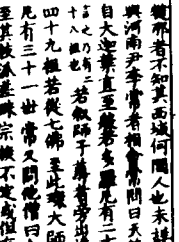 那者不知其西域何國人也未詳
與河南尹李常者相會常問曰天
自大迦葉直至般若多羅凡有二
言之乃有二十八祖也若敘師子尊者旁出
四十九祖若從七佛至此璨大師
凡有三十一世常又問他僧曰
至其支派差殊宗族不定或但有